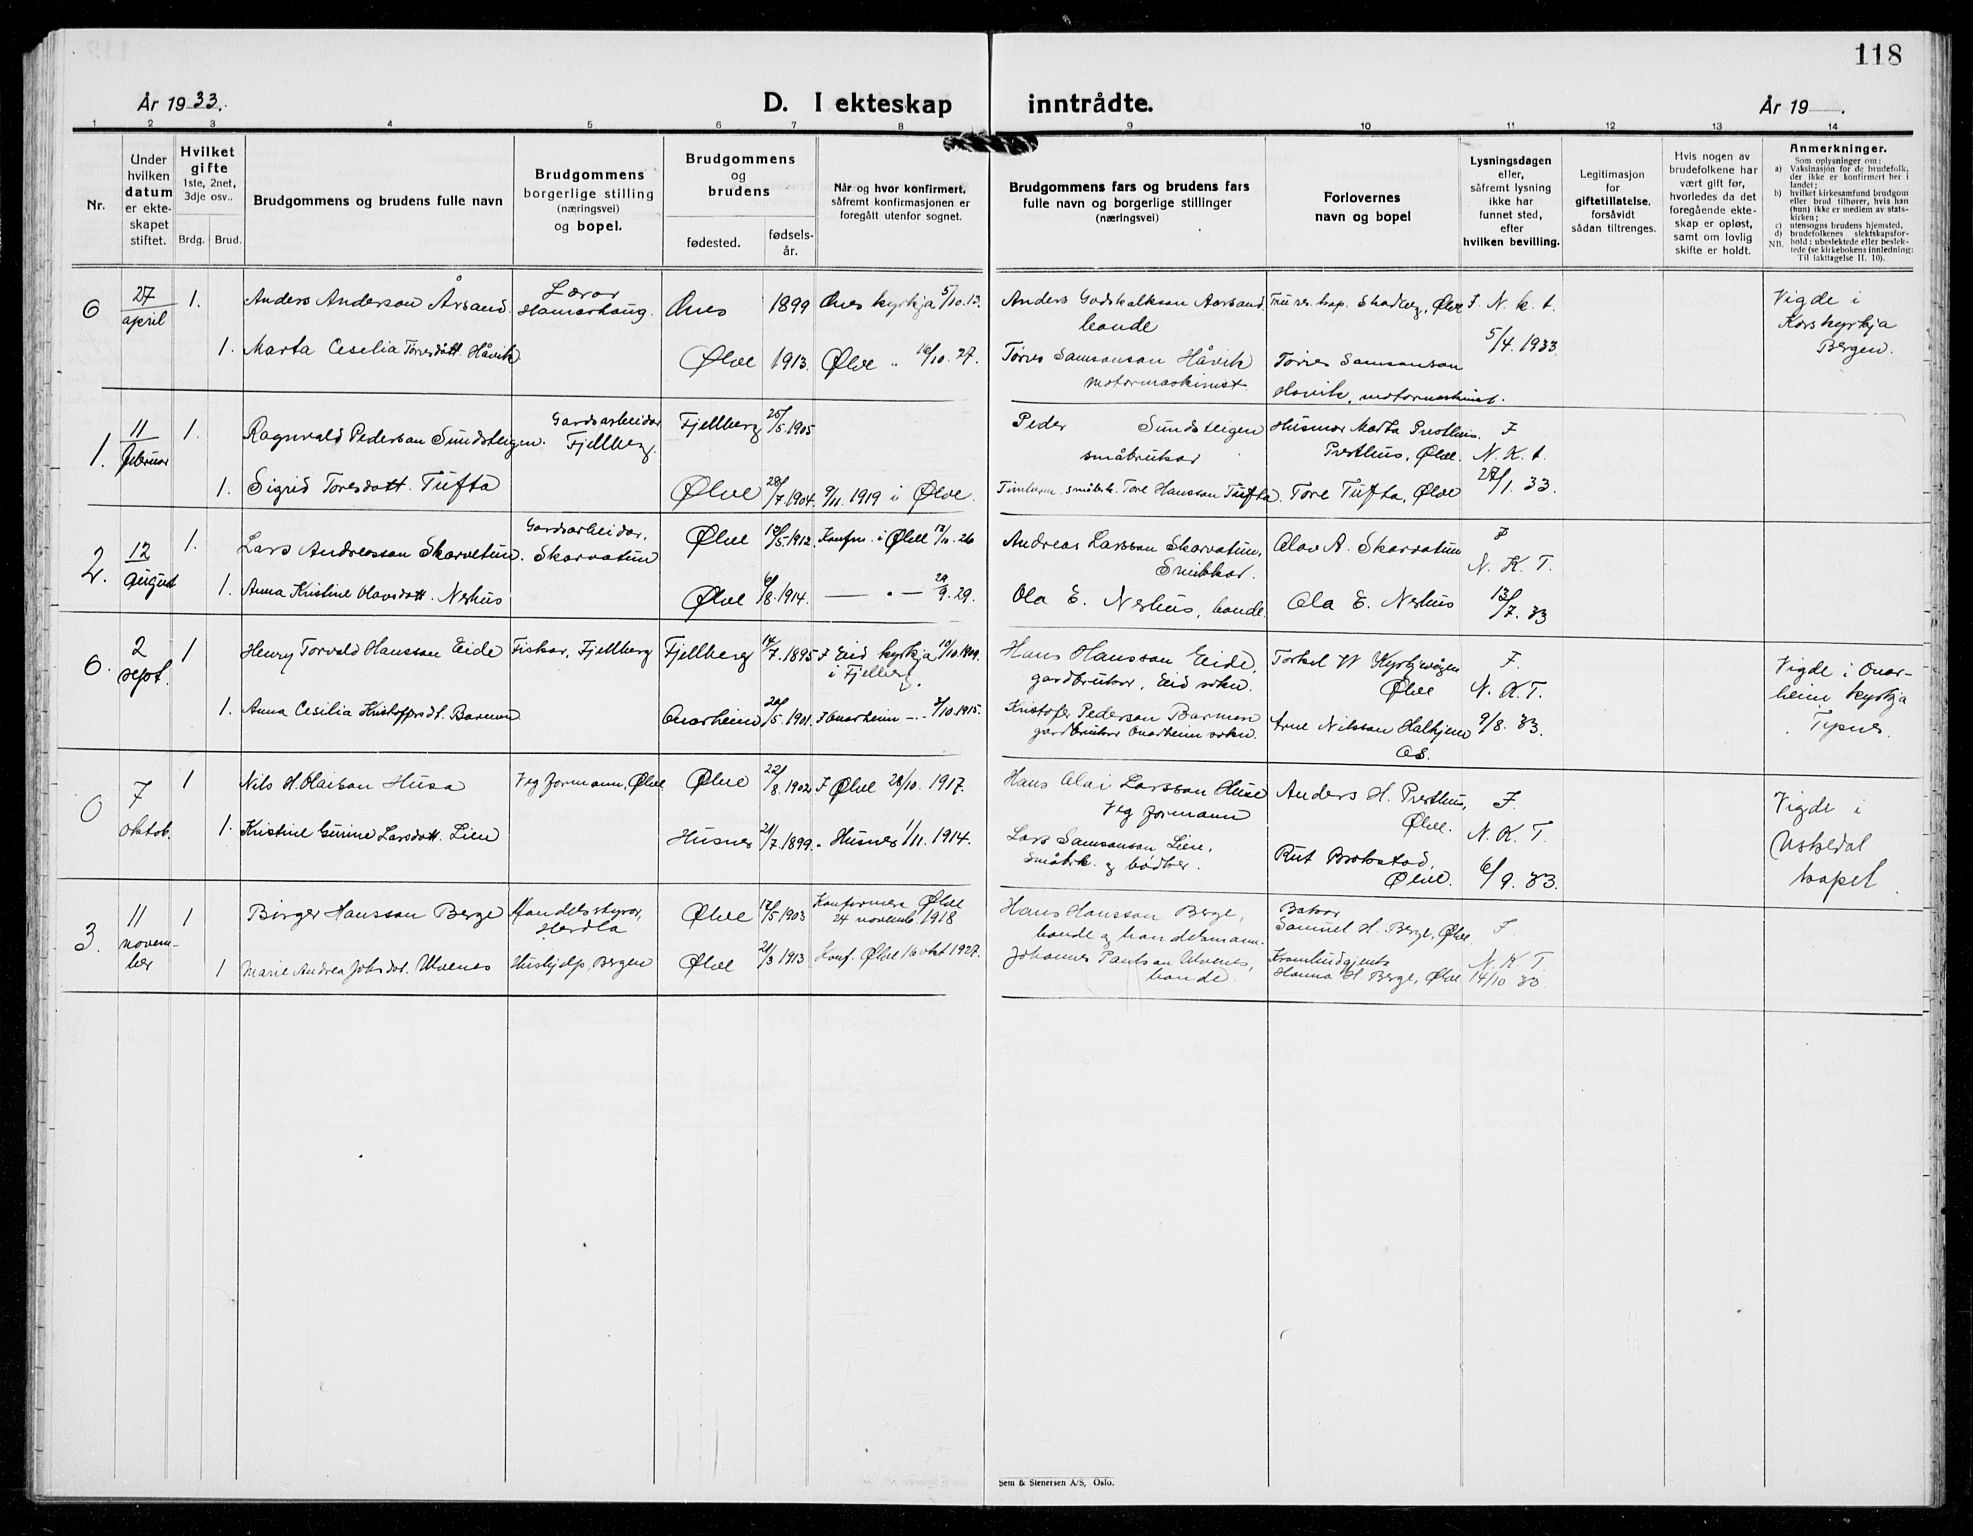 118
År 1933.
D. I ekteskap inntrådte.
År 19 .
1 2 3 4 5 6 7 8 9 10 11 12 13 14
Nr.
Under
hvilken
datum
er ekte-
skapet
stiftet.
Hvilket
gifte
1ste, 2net,
3dje osv..
Brdg. Brud.
Brudgommens og brudens fulle navn
Brudgommens
borgerlige stilling
(næringsvei)
og bopel.
Brudgommens
og
brudens
fødested.
fødsels-
år.
Når og hvor konfirmert,
såfremt konfirmasjonen er
foregått utenfor sognet.
Brudgommens fars og brudens fars
fulle navn og borgerlige stillinger
(næringsvei)
Forlovernes
navn og bopel
Lysningsdagen
eller,
såfremt lysning
ikke har
funnet sted,
efter
hvilken bevilling.
Legitimasjon
for
giftetillatelse,
forsåvidt
sådan tiltrenges.
Hvis nogen av
brudefolkene har
vært gift før,
hvorledes da det
foregående ekte-
skap er opløst,
samt om lovlig
skifte er holdt.
Anmerkninger.
Som oplysninger om:
a) Vaksinasjon for de brudefolk,
der ikke er konfirmert her i
landet;
b) hvilket kirkesamfund brudgom
eller brud tilhører, hvis han
(hun) ikke er medlem av stats-
kirken;
c) utensogns brudens hjemsted.
d) brudefolkenes slektskapsfor-
hold: ubeslektede eller beslek-
tede (se kirkebokens innledning:
NB. Til iakttagelse II. 10).
6 27 april 1. Anders Anderson Årsand. Lærar Hamarhaug. Ænes 1899 Ænes kyrkja 5/10.13. Anders Godskalkson Aarsand. bonde Ølve F. N. k. t.
5/4.1933.
Vigde i
Korskyrkja
Bergen.
1. Marta Ceselia Torresdått. Håvik Ølve 1913. Ølve " 16/10.27. Torres Samsonson Håvik motormaskinist Torres Samsonson
Håvik, motormaskinist.
1. 11 februar 1. Ragnvald Pederson Sundsteigen. Gardsarbeidar Fjellberg. Fjellberg 25/5.1905 Peder Sundsteigen småbrukar Husmor Marta Presthus.
Presthus, Ølve. F N. K. t.
27/1. 33.
1. Sigrid Toresdatt. Tufta Ølve 28/7.1904. 9/11. 1919 i Ølve. Tore Hansson Tufta. Tore Tufta, Ølve
2. 12 august 1. Lars Andreasson Skarvatun. Gardsarbeidar. Skarvatun Ølve 1912. Konfm. i Ølve 26 Andreas Larsson Skarvatun, Snikkar. Olav A. Skarvatun F
N. K. T.
13/7. 33
1. Anna Kristine Olavsdott. Neshus Ølve 6/8.1914. — " — 29/9. 29. Ola E. Neshus, bonde. Ola E. Neshus
6. 2 sept. 1 Henry Torvald Hansson Eide Fiskar, Fjellberg Fjellberg 14/7.1895 F Eid kyrkja 10/10.1909.
i Fjellberg. Hans Hansson Eide,
gardbrukar, Eid sokn. Torkel W Kyrkjevågen
Ølve F.
N. K. T.
9/8. 33.
Vigde i Onar-
heim kyrkja
Tysnes.
1. Anna Cesilia Kristoffersdt. Barmen Onarheim 20/5.1901. F Onarheim -..- 3/10.1915. Kristofer Pederson Barmen
gardbrukar Onarheim sokn. Arne Nilsson Halhjem
Os.
0 7 oktob. 1 Nils H. Olaison Husa Vegformann, Ølve Ølve 22/8.1902. F Ølve 28/10. 1917. Hans Olai Larsson Huse
Vegformann Anders H. Presthus,
Ølve. F.
N. K. T.
6/9. 33.
Vigde i
Uskedal
kapel.
1. Kristine Gurine Larsdott. Lien Husnes 21/7.1899. " Husnes 1/11. 1914. Lars Samsonson Lien,
Småbrk. og bødker. Rut Brokstad.
Ølve.
3. 11 novem-
ber 1 Birger Hansson Berge Handelsstyrar,
Herdla Ølve 17/5 1903 Konfirmera Ølve
24 novemb. 1918 Hans Hansson Berge,
bonde og handelsmann. Bakar
Samuel H. Berge, Ølve. F.
N. K. T.
14/10. 33.
1 Marie Andrea Johsdot. Ulvenes Hushjelp, Bergen Ølve 21/3 1913 Konf. Ølve 16 okt 1927. Johannes Paulson Ulvenes,
bonde. Krambudgjenta
Hanna H. Berge, Ølve
Sem & Stenersen A/S, Oslo.